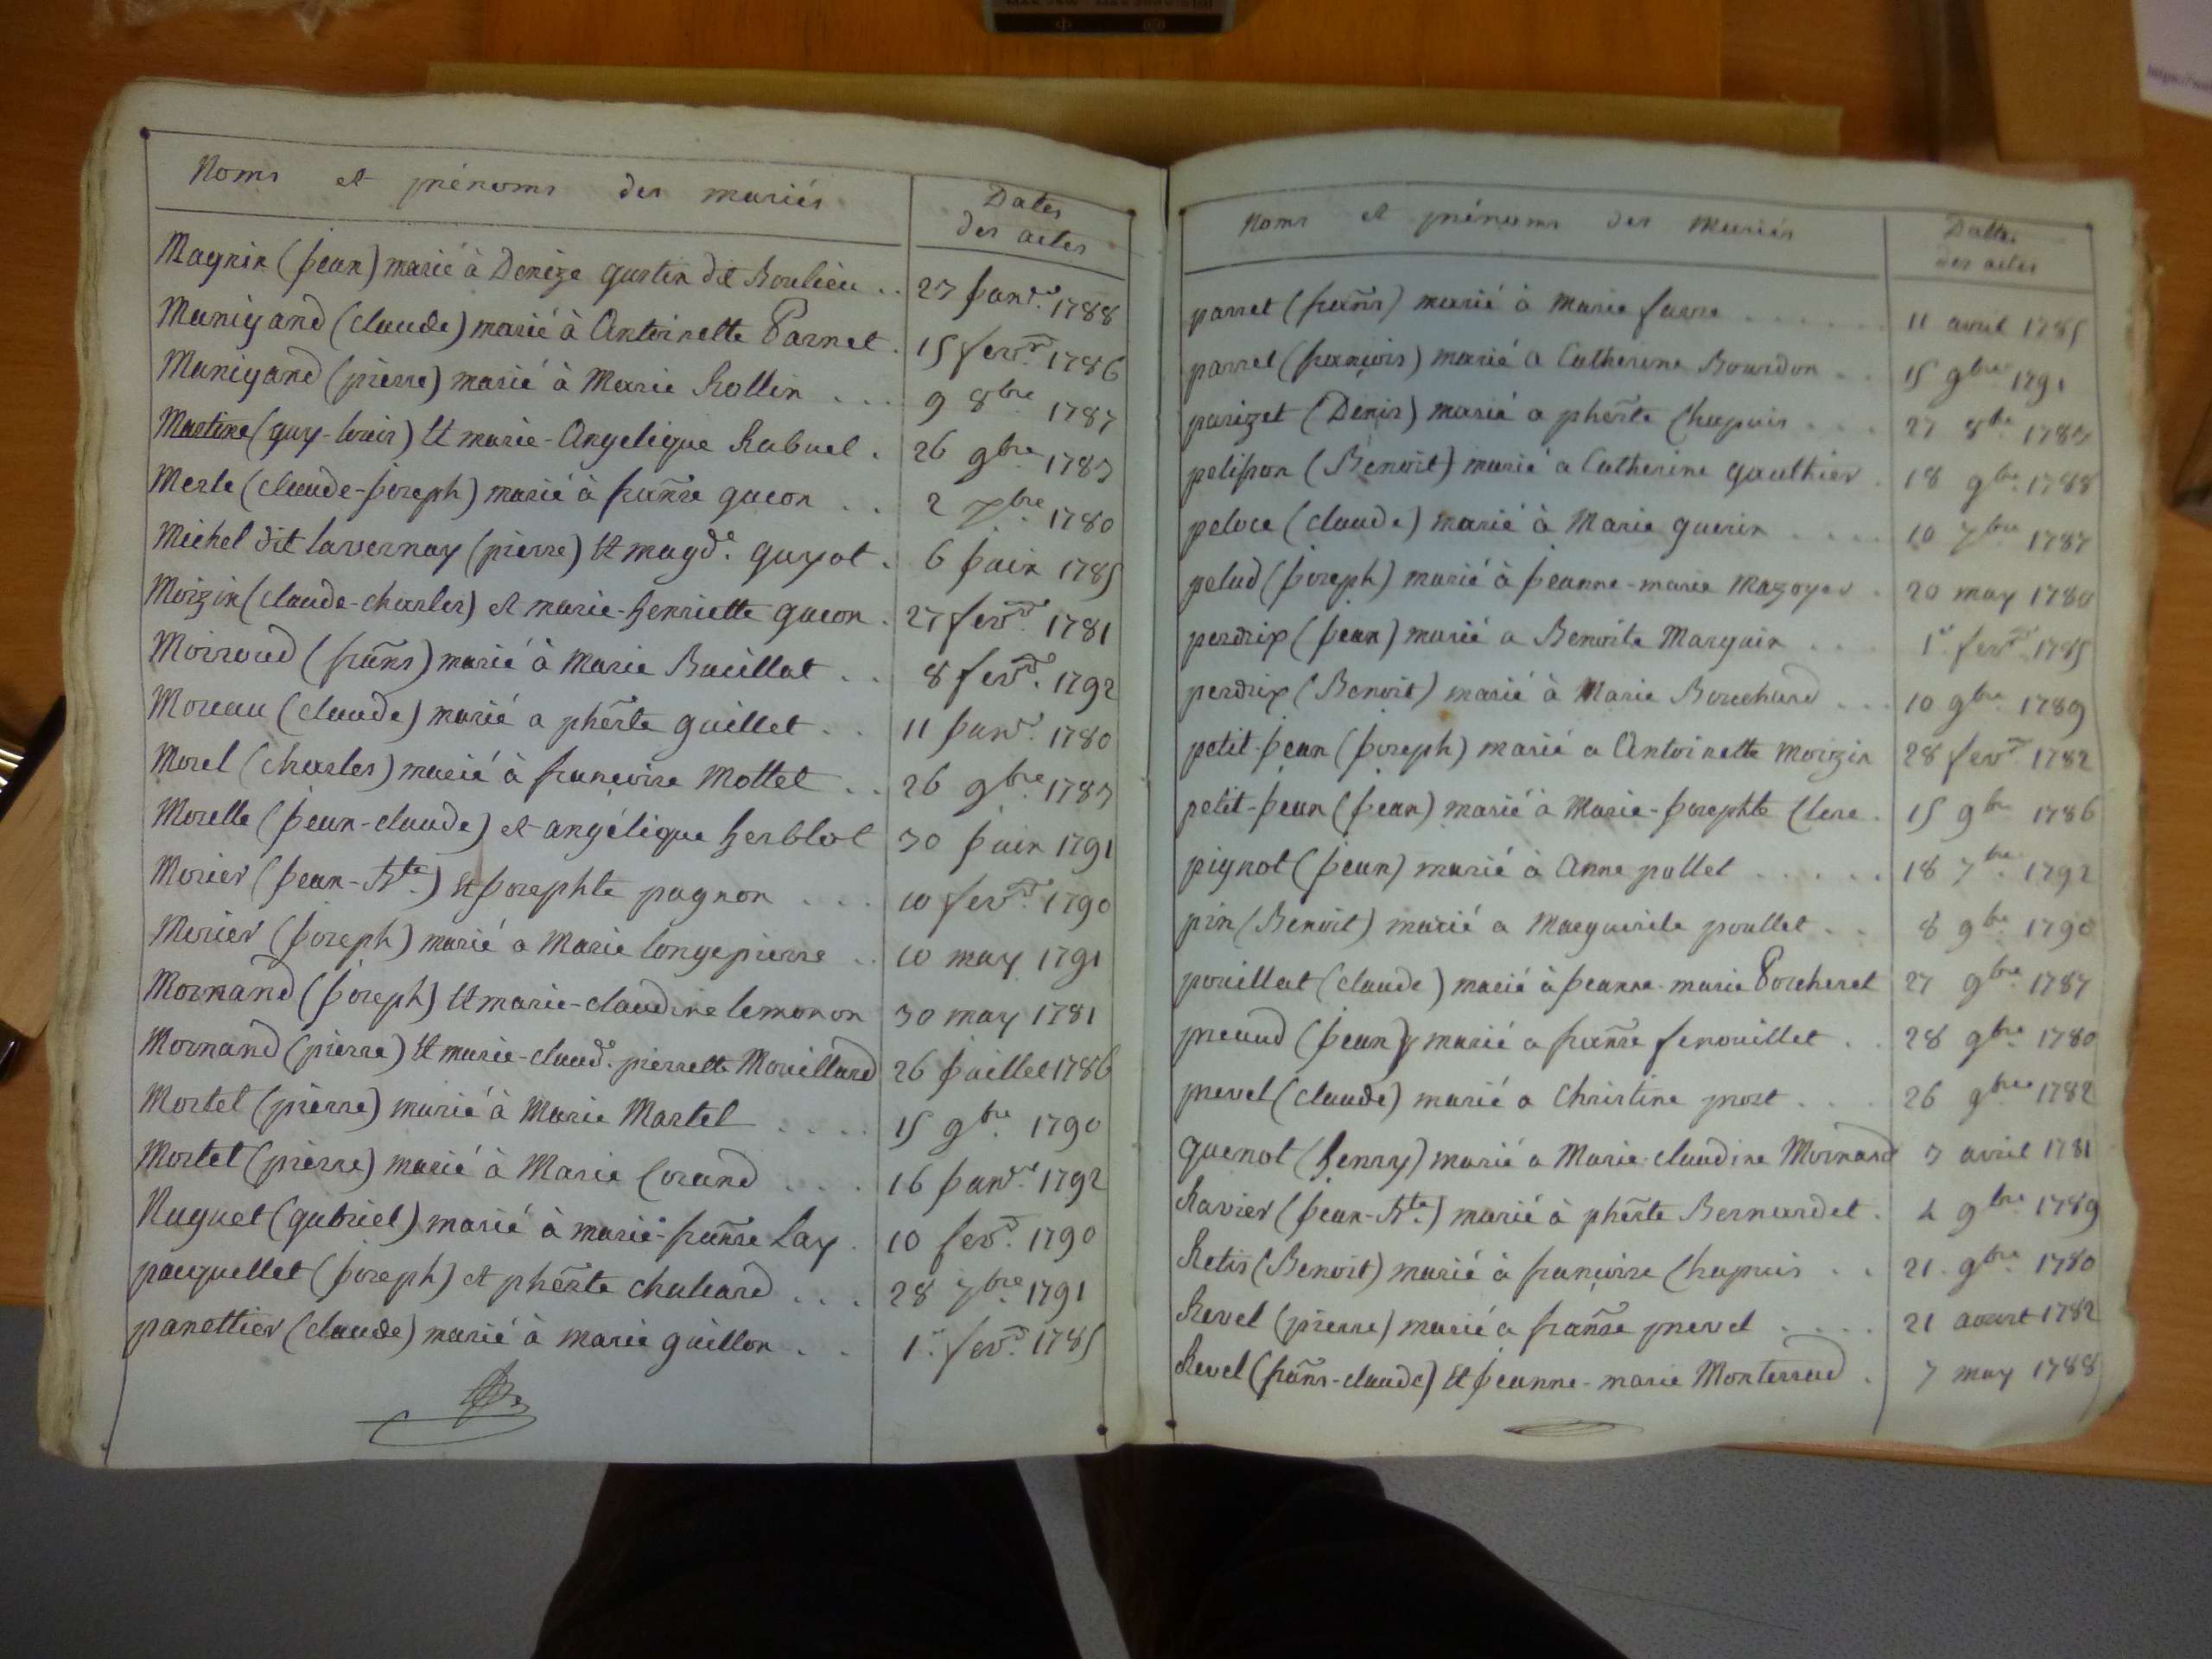 Noms et prénoms des mariés
Dates
des actes
Magnin (Jean) marié à Denize gustin dit Boulieu .. 27 Janv.er 1788
Manigand (claude) marié à Antoinette Parnet . 15 fevr. 1786
Manigand (pierre) marié à Marie Rollin ... 9 8bre 1787
Martine (guy-louis) & marie-Angelique Rabuel . 26 9bre 1787
Merle (claude-Joseph) marié à franse gacon .. 2 7bre 1780
Michel dit lavernay (pierre) & magde. guyot . 6 Juin 1785
Moizin (claude-charles) et marie-henriette gacon . 27 fevr. 1781
Moiroud (frans) marié à Marie Buillat .. 8 fevr. 1792
Moreau (claude) marié a pherte guillet .. 11 Janv. 1780
Morel (charles) marié à françoise Mottet .. 26 9bre 1787
Morelle (Jean-claude) et angélique herblot 30 Juin 1791
Morier (Jean-Bte.) & Josephte pagnon ... 10 fevr. 1790
Morier (Joseph) marié a Marie longepierre .. 10 may 1791
Mornand (Joseph) & marie-claudine lemonon 30 may 1781
Mornand (pierre) & marie-claude. pierrette Mouillard 26 Juillet 1786
Mortel (pierre) marié à Marie Martel .... 15 9bre 1790
Mortet (pierre) marié à Marie Corand .... 16 Janv. 1792
Nuguet (gabriel) marié à marie-franse Lay . 10 fevr. 1790
pauquellet (Joseph) et pherte chaleard ... 28 7bre 1791
panettier (claude) marié à marie guillon .. 1er. fevr. 1785
Noms et prénoms des Mariés
Dattes
des actes
parret (frans) marié à Marie favre ...... 11 avril 1785
parret (françois) marié a Catherine Bourdon .. 15 9bre 1791
parizet (Denis) marié a pherte Chapuis .... 27 8bre 1787
pelisson (Benoit) marié a Catherine gauthier . 18 9bre 1788
peloce (claude) marié à Marie guerin .... 10 7bre 1787
pelud (Joseph) marié à Jeanne-marie Mazoyer . 20 may 1780
perdrix (Jean) marié a Benoite Marguin .... 1er fevr. 1785
perdrix (Benoit) marié à Marie Bouchard ... 10 9bre 1789
petit-Jean (Joseph) marié a Antoinette Moizin 28 fevr. 1782
petit-Jean (Jean) marié à Marie-Josephte Clerc . 15 9bre 1786
pignot (Jean) marié à Anne pollet ..... 18 7bre 1792
pin (Benoit) marié a Marguerite poullet .. 8 9bre 1790
pouillat (claude) marié à Jeanne-marie Porcheret 27 9bre 1787
preaud (Jean) marié a franse fenouillet .. 28 9bre 1780
prevel (claude) marié a Christine prost .... 26 9bre 1782
quenot (henry) marié a Marie-claudine Mornand 7 avril 1781
Ravier (Jean-Bte.) marié à pherte Bernardet . 4 9bre 1789
Retis (Benoit) marié à françoise Chapuis .. 21 9bre 1780
Revel (pierre) marié a franse prevel .... 21 aoust 1782
Revel (frans-claude) & Jeanne-marie Monterrad . 7 may 1788